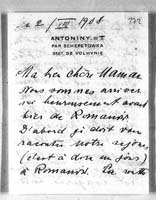 le 2/III 1908
ANTONINY
PAR SCHEPETOWKA
GOUV. DE VOLHYNIE
Ma bien chère Maman
Nous sommes arrivés
ici heureusement avant
hier de Romanow
D'abord je dois vous
raconter notre séjour
(c'est à dire un jour)
à Romanow. En